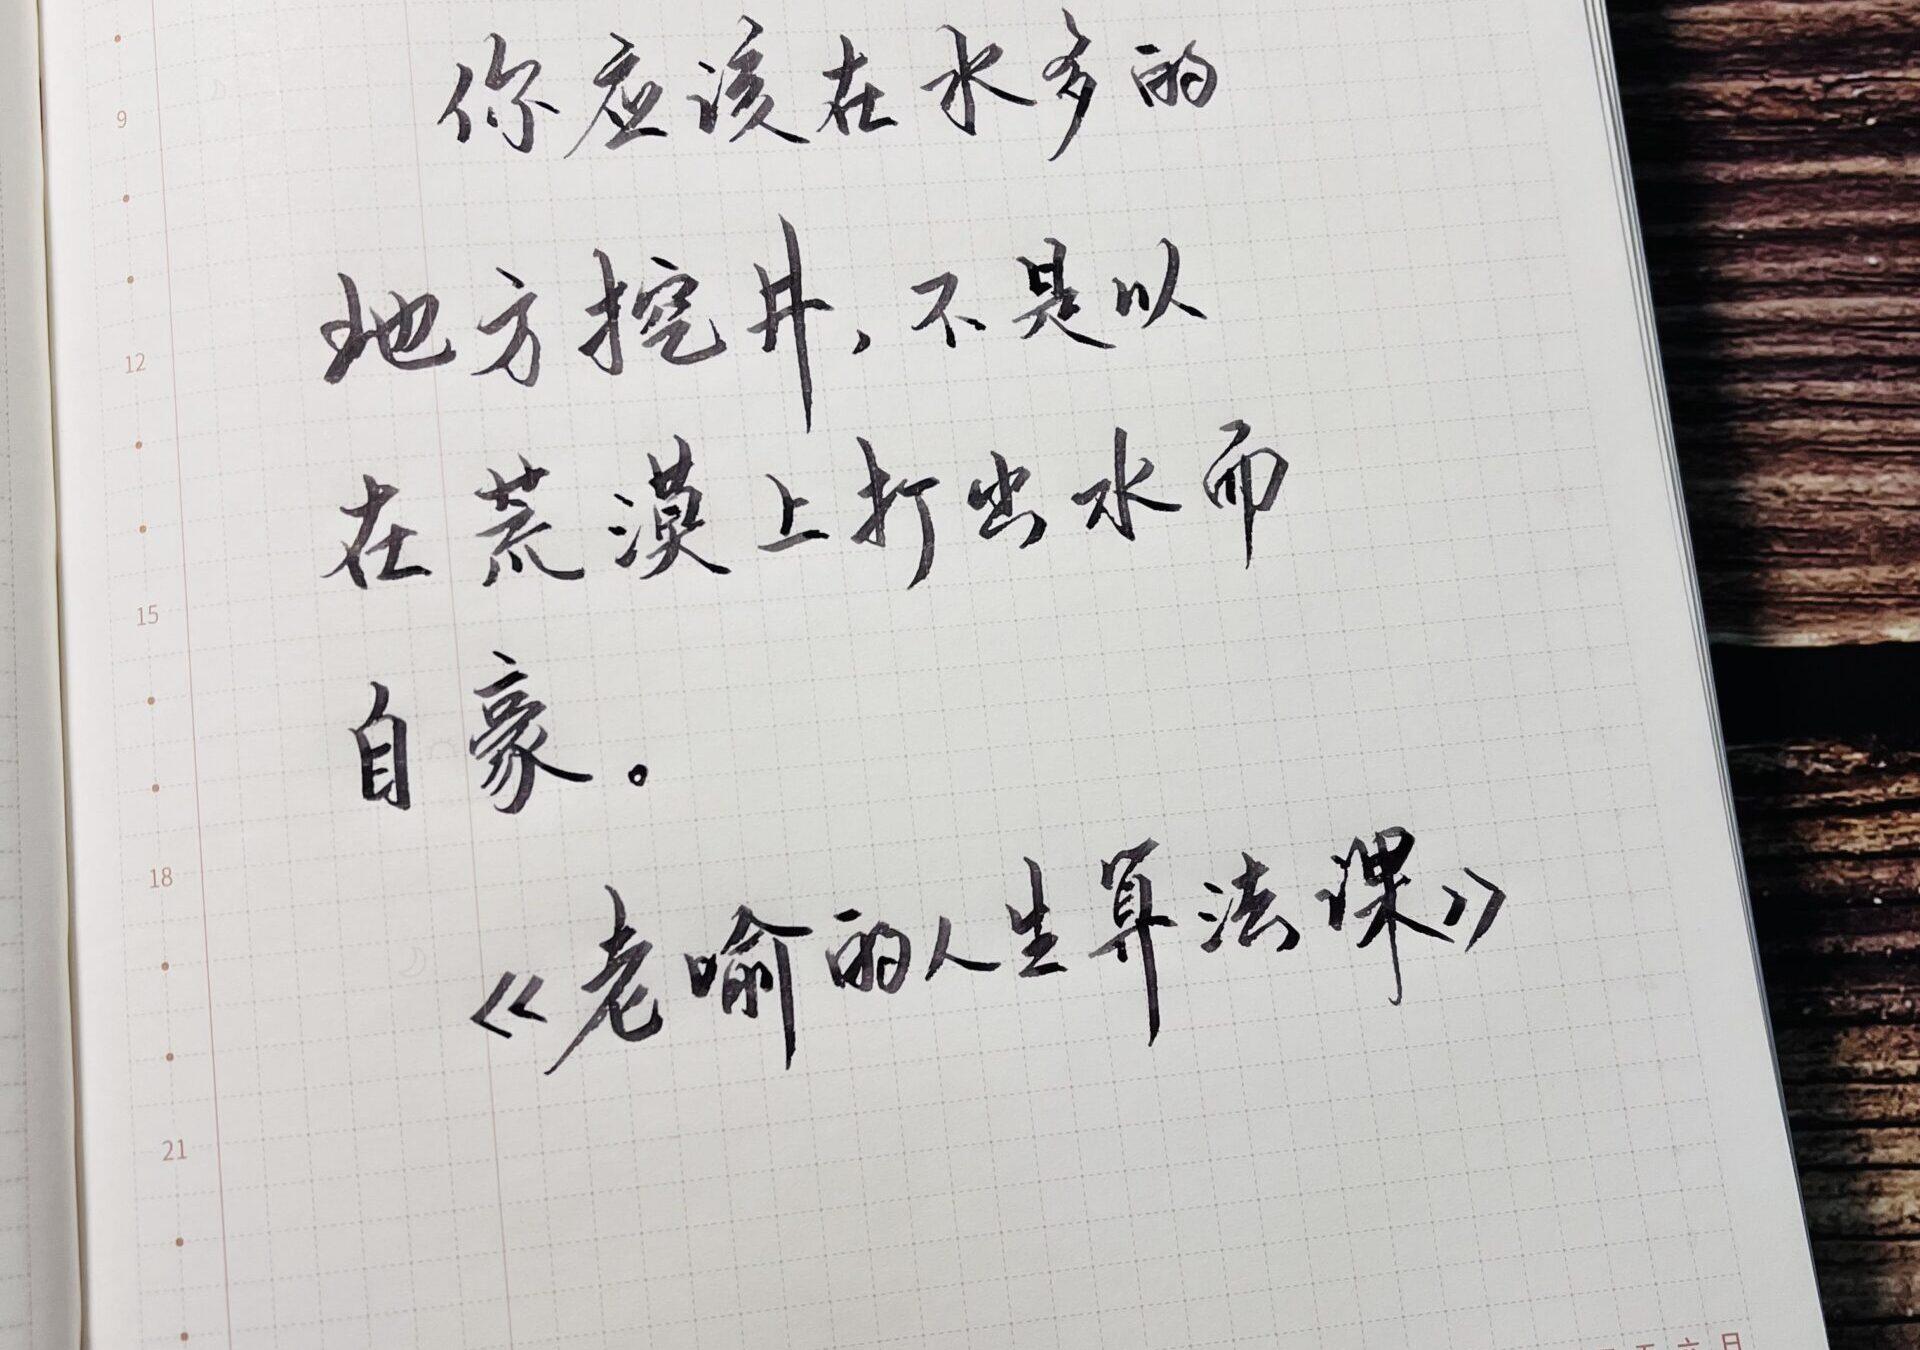 你应该在水多的
9
地方挖井,不是以
12
在荒漠上打出水而
15
自豪。
18
《老喻的人生算法课》
21
五六日